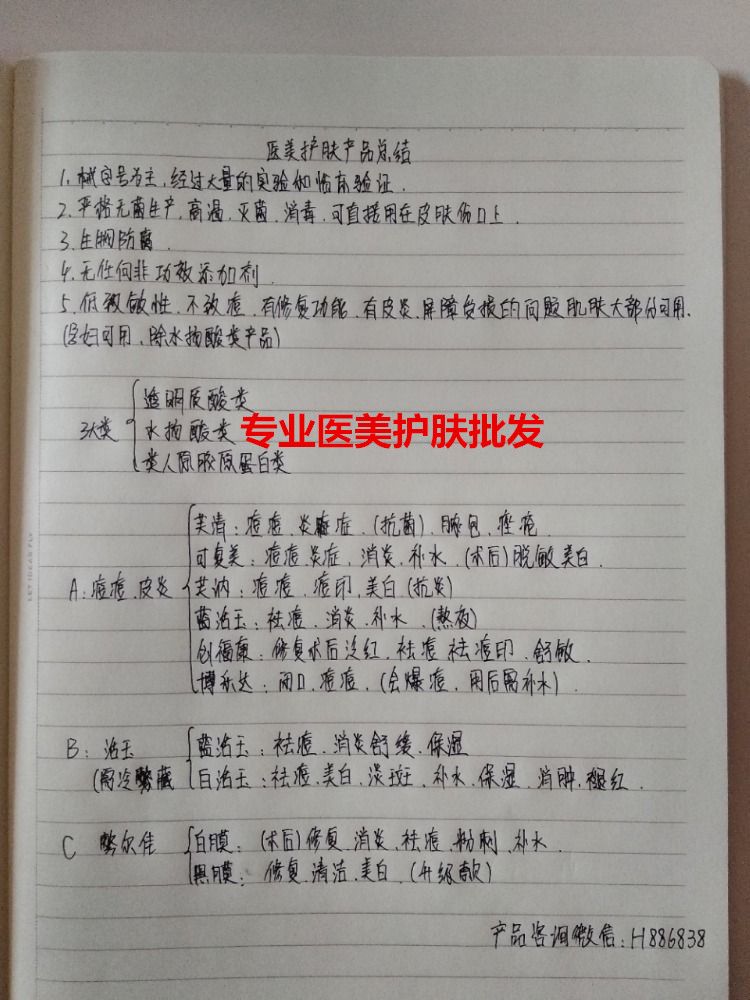 医美护肤产品总结
1. 械字号为主，经过大量的实验和临床验证.
2. 严格无菌生产，高温、灭菌、消毒、可直接用在皮肤伤口上.
3. 生物防腐.
4. 无任何非功效添加剂.
5. 低致敏性、不致痘、有修复功能、有皮炎、屏障受损的问题肌肤大部分可用.
(孕妇可用、除水杨酸类产品)
透明质酸类
3大类 水杨酸类 专业医美护肤批发
类人原胶原蛋白类
芙清：痘痘、炎症、(抗菌)、脓包、痤疮
可复美：痘痘、炎症、消炎、补水、(术后)脱敏美白.
A：痘痘、皮炎 芙汭：痘痘、痘印、美白(抗炎)
蓝治玉：祛痘、消炎、补水、(熬夜)
创福康：修复术后泛红、祛痘、祛痘印、舒敏.
博乐达：闭口、痘痘、(会爆痘、用后需补水).
B：治玉 蓝治玉：祛痘、消炎舒缓、保湿
(需冷藏 白治玉：祛痘、美白、淡斑、补水、保湿、消肿、褪红.
C 敷尔佳 白膜：(术后)修复、消炎、祛痘、粉刺、补水.
黑膜：修复、清洁、美白、(升级款)
产品咨询微信：H886838